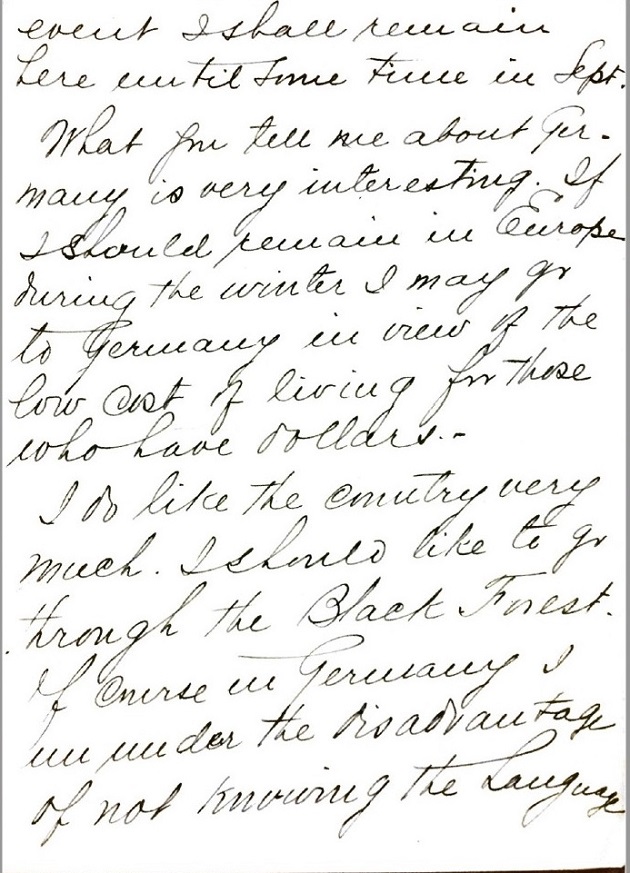 event I shall remain
here until some time in Sept.
What you tell me about Ger-
many is very interesting. If
I should remain in Europe
during the winter I may go
to Germany in view of the
low cost of living for those
who have dollars.-
I do like the country very
much. I should like to go
through the Black Forest.
Of course in Germany I
am under the disadvantage
of not knowing the language